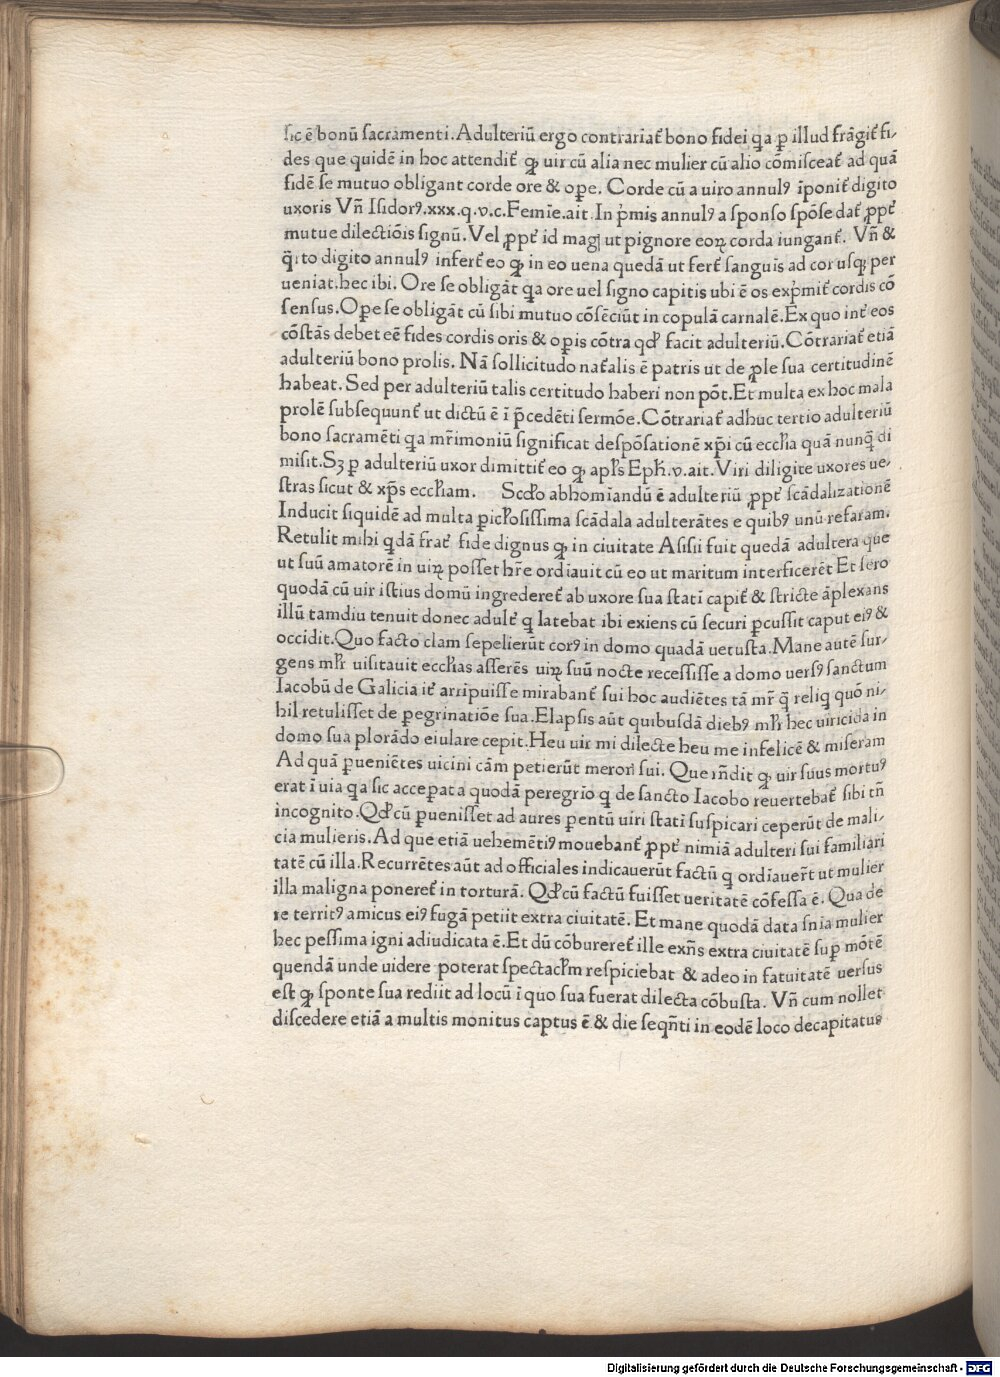 sic ē bonū sacramenti. Adulteriū ergo contrariat᷑ bono fidei q̄a ꝑ illud frāgit᷑ fi-
des que quidē in hoc attendit᷑ ꝙ uir cū alia nec mulier cū alio cōmisceat᷑ ad quā
fidē se mutuo obligant corde ore & oꝑe. Corde cū a uiro annulꝰ īponit᷑ digito
uxoris Vn̄ Isidorꝰ.xxx.q.v.c.Femīe.ait. In p᷑mis annulꝰ a sponso spōse dat᷑ ꝓpt᷑
mutue dilectiōis signū. Vel ꝓpt᷑ id magꝭ ut pignore eoꝝ corda iungant᷑. Vn̄ &
q᷑rto digito annulꝰ infert᷑ eo ꝙ in eo uena quedā ut fert᷑ sanguis ad cor usꝗ per
ueniat.hec ibi. Ore se obligāt q̄a ore uel signo capitis ubi ē os exp᷑mit᷑ cordis cō
sensus. Oꝑe se obligāt cū sibi mutuo cōsēciūt in copulā carnalē. Ex quo int᷑ eos
cōstās debet eē fides cordis oris & oꝑis cōtra qđ facit adulteriū. Cōtrariat᷑ etiā
adulteriū bono prolis. Nā sollicitudo nat᷑alis ē patris ut de ꝓle sua certitudinē
habeat. Sed per adulteriū talis certitudo haberi non pōt. Et multa ex hoc mala
prolē subsequunt᷑ ut dictū ē ī p̄cedēti sermōe. Cōtrariat᷑ adhuc tertio adulteriū
bono sacramēti q̄a mr̄imoniū significat despōsationē xp̄i cū ecclīa quā nunq̄ di
misit. Sꝫ ꝑ adulteriū uxor dimittit᷑ eo ꝙ apl̄s Eph̄.v.ait. Viri diligite uxores ue-
stras sicut & xp̄s eccl̄iam. Scđo abhomīandū ē adulteriū ꝓpt᷑ scādalizationē
Inducit siquidē ad multa ꝑicl̄osissima scādala adulterātes e quibꝰ unū referam.
Retulit mihi q̄dā frat᷑ fide dignus ꝙ in ciuitate Asisii fuit quedā adultera que
ut suū amatorē in uiꝝ posset hr̄e ordīauit cū eo ut maritum interficerēt Et sero
quodā cū uir istius domū ingrederet᷑ ab uxore sua statī capit᷑ & stricte āplexans
illū tamdiu tenuit donec adult᷑ q̄ latebat ibi exiens cū securi ꝑcussit caput eiꝰ &
occidit. Quo facto clam sepelierūt corꝰ in domo quadā uetusta. Mane autē sur-
gens ml̄r uisitauit eccl̄ias asserēs uiꝝ suū nocte recessisse a domo uersꝰ sanctum
Iacobū de Galicia it᷑ arripuisse mirabant᷑ sui hoc audiētes tā mr̄ q̄ reliq̄ quō ni-
hil retulisset de ꝑegrinatiōe sua. Elapsis aūt quibusdā diebꝰ ml̄r hec uiricida in
domo sua plorādo eiulare cepit. Heu uir mi dilecte heu me infelicē & miseram
Ad quā ꝑueniētes uicini cām petierūt merorī sui. Que rn̄dit ꝙ uir suus mortuꝰ
erat ī uia q̄a sic acceꝑat a quodā peregrīo q̄ de sancto Iacobo reuertebat᷑ sibi tn̄
incognito. Qđ cū ꝑuenisset ad aures ꝑentū uiri statī suspicari ceperūt de mali-
cia mulieris. Ad que etiā uehemētiꝰ mouebant᷑ ꝓpt᷑ nimiā adulteri sui familiari
tatē cū illa. Recurrētes aūt ad officiales indicauerūt factū q̄ ordīauer̄t ut mulier
illa maligna poneret᷑ in torturā. Qđ cū factū fuisset ueritatē cōfessa ē. Qua de
re territꝰ amicus eiꝰ fugā petiit extra ciuitatē. Et mane quodā data sn̄ia mulier
hec pessima igni adiudicata ē. Et dū cōbureret᷑ ille exn̄s extra ciuitatē suꝑ mōtē
quendā unde uidere poterat spectacl̄m respiciebat & adeo in fatuitatē uersus
est ꝙ sponte sua rediit ad locū ī quo sua fuerat dilecta cōbusta. Vn̄ cum nollet
discedere etiā a multis monitus captus ē & die seqn̄ti in eodē loco decapitatus
Digitalisierung gefördert durch die Deutsche Forschungsgemeinschaft - DFG